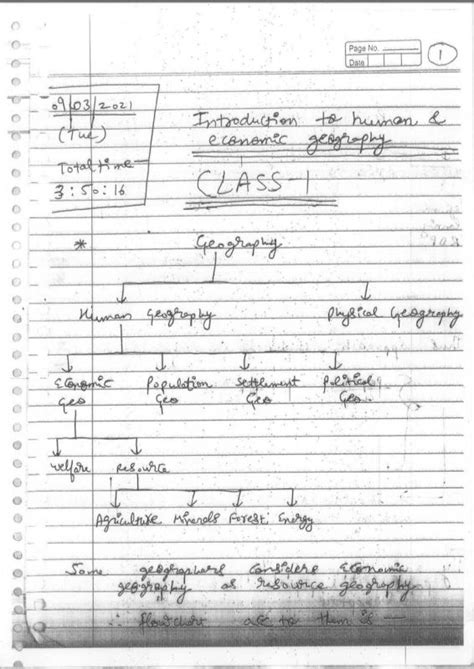 Page No.
Date
1
09/03/2021
(Tue)
Total time
3:50:16
Introduction to human &
economic geography
CLASS-1
* Geography
Human Geography Physical Geography
Economic Population Settlement Political
Geo Geo Geo Geo.
Welfare Resource
Agriculture Minerals Forest Energy
Some geographers considers Economic
geography as resource geography.
∴ flowchart acc to them is —